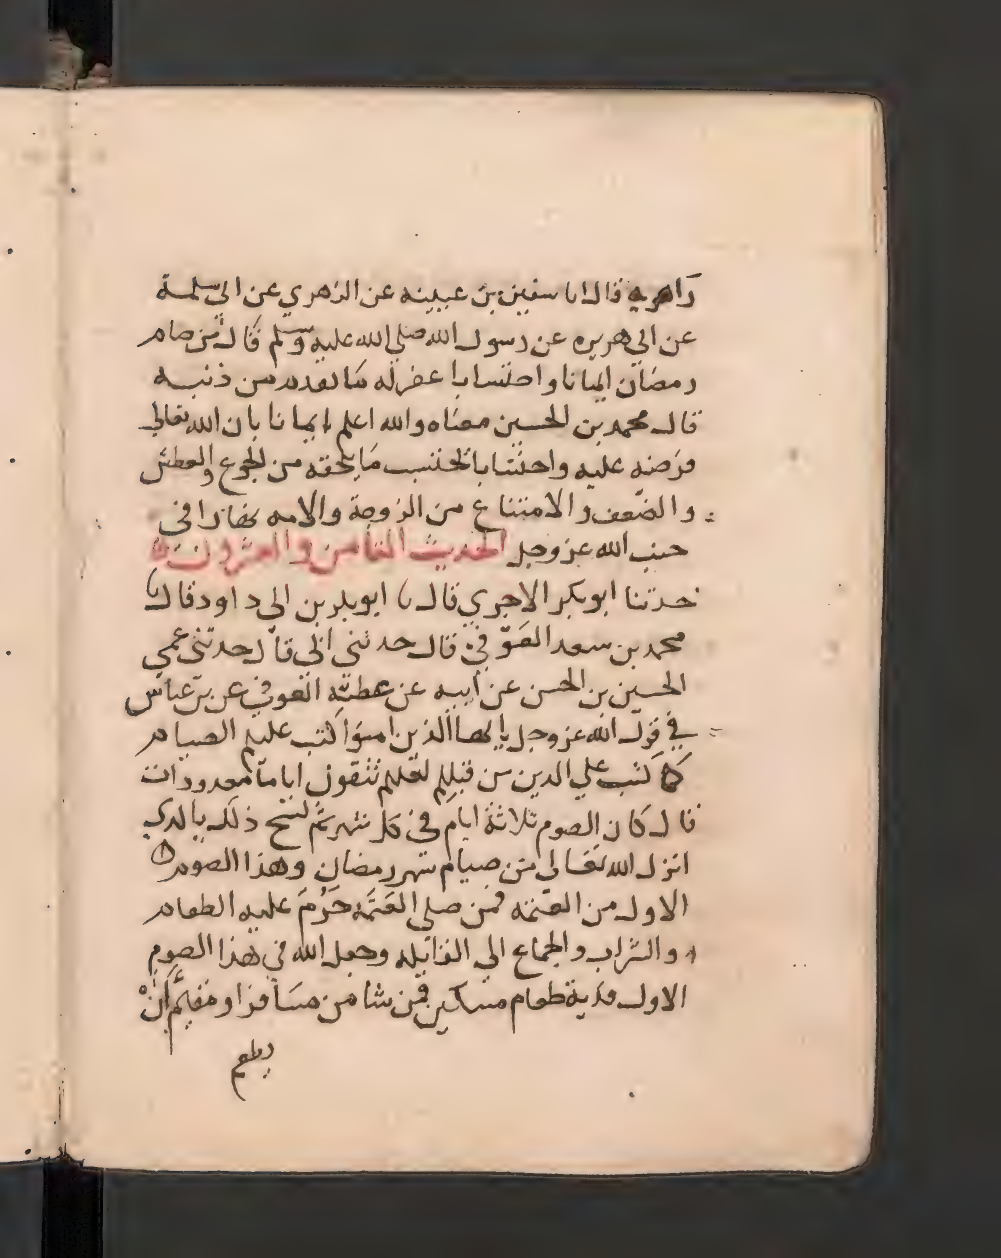 راهويه قال انا سفين بن عيينه عن الزهري عن ابي سلمة
عن ابي هريره عن رسول الله صلى الله عليه وسلم قال من صام
رمضان ايمانا واحتسابا غفر له ما تقدم من ذنبه
قال محمد بن الحسين معناه والله اعلم ايمانا بان الله تعالى
فرضه عليه واحتسابا يحتسب ما يلحقه من الجوع والعطش
والضعف والامتناع من الزوجة والامه في
جنب الله عز وجل الحديث الثامن والعشرون
حدثنا ابو بكر الاجري قال نا ابو بكر بن ابي داود قال نا
محمد بن سعد العوفي قال حدثني ابي قال حدثني عمي
الحسين بن الحسن عن ابيه عن عطيه العوفي عن بن عباس
في قول الله عز وجل يا ايها الذين امنوا كتب عليكم الصيام
كما كتب علي الذين من قبلكم لعلكم تتقون اياما معدودات
قال كان الصوم ثلاثة ايام في كل شهر ثم نسخ ذلك بالذي
انزل الله تعالى من صيام شهر رمضان وهذا الصوم
الاول من العتمه فمن صلي العتمه حرم عليه الطعام
والشراب والجماع الي القابله وجعل الله في هذا الصوم
الاول فدية طعام مسكين فمن شا من مسافرا ومقيم ان
يطعم